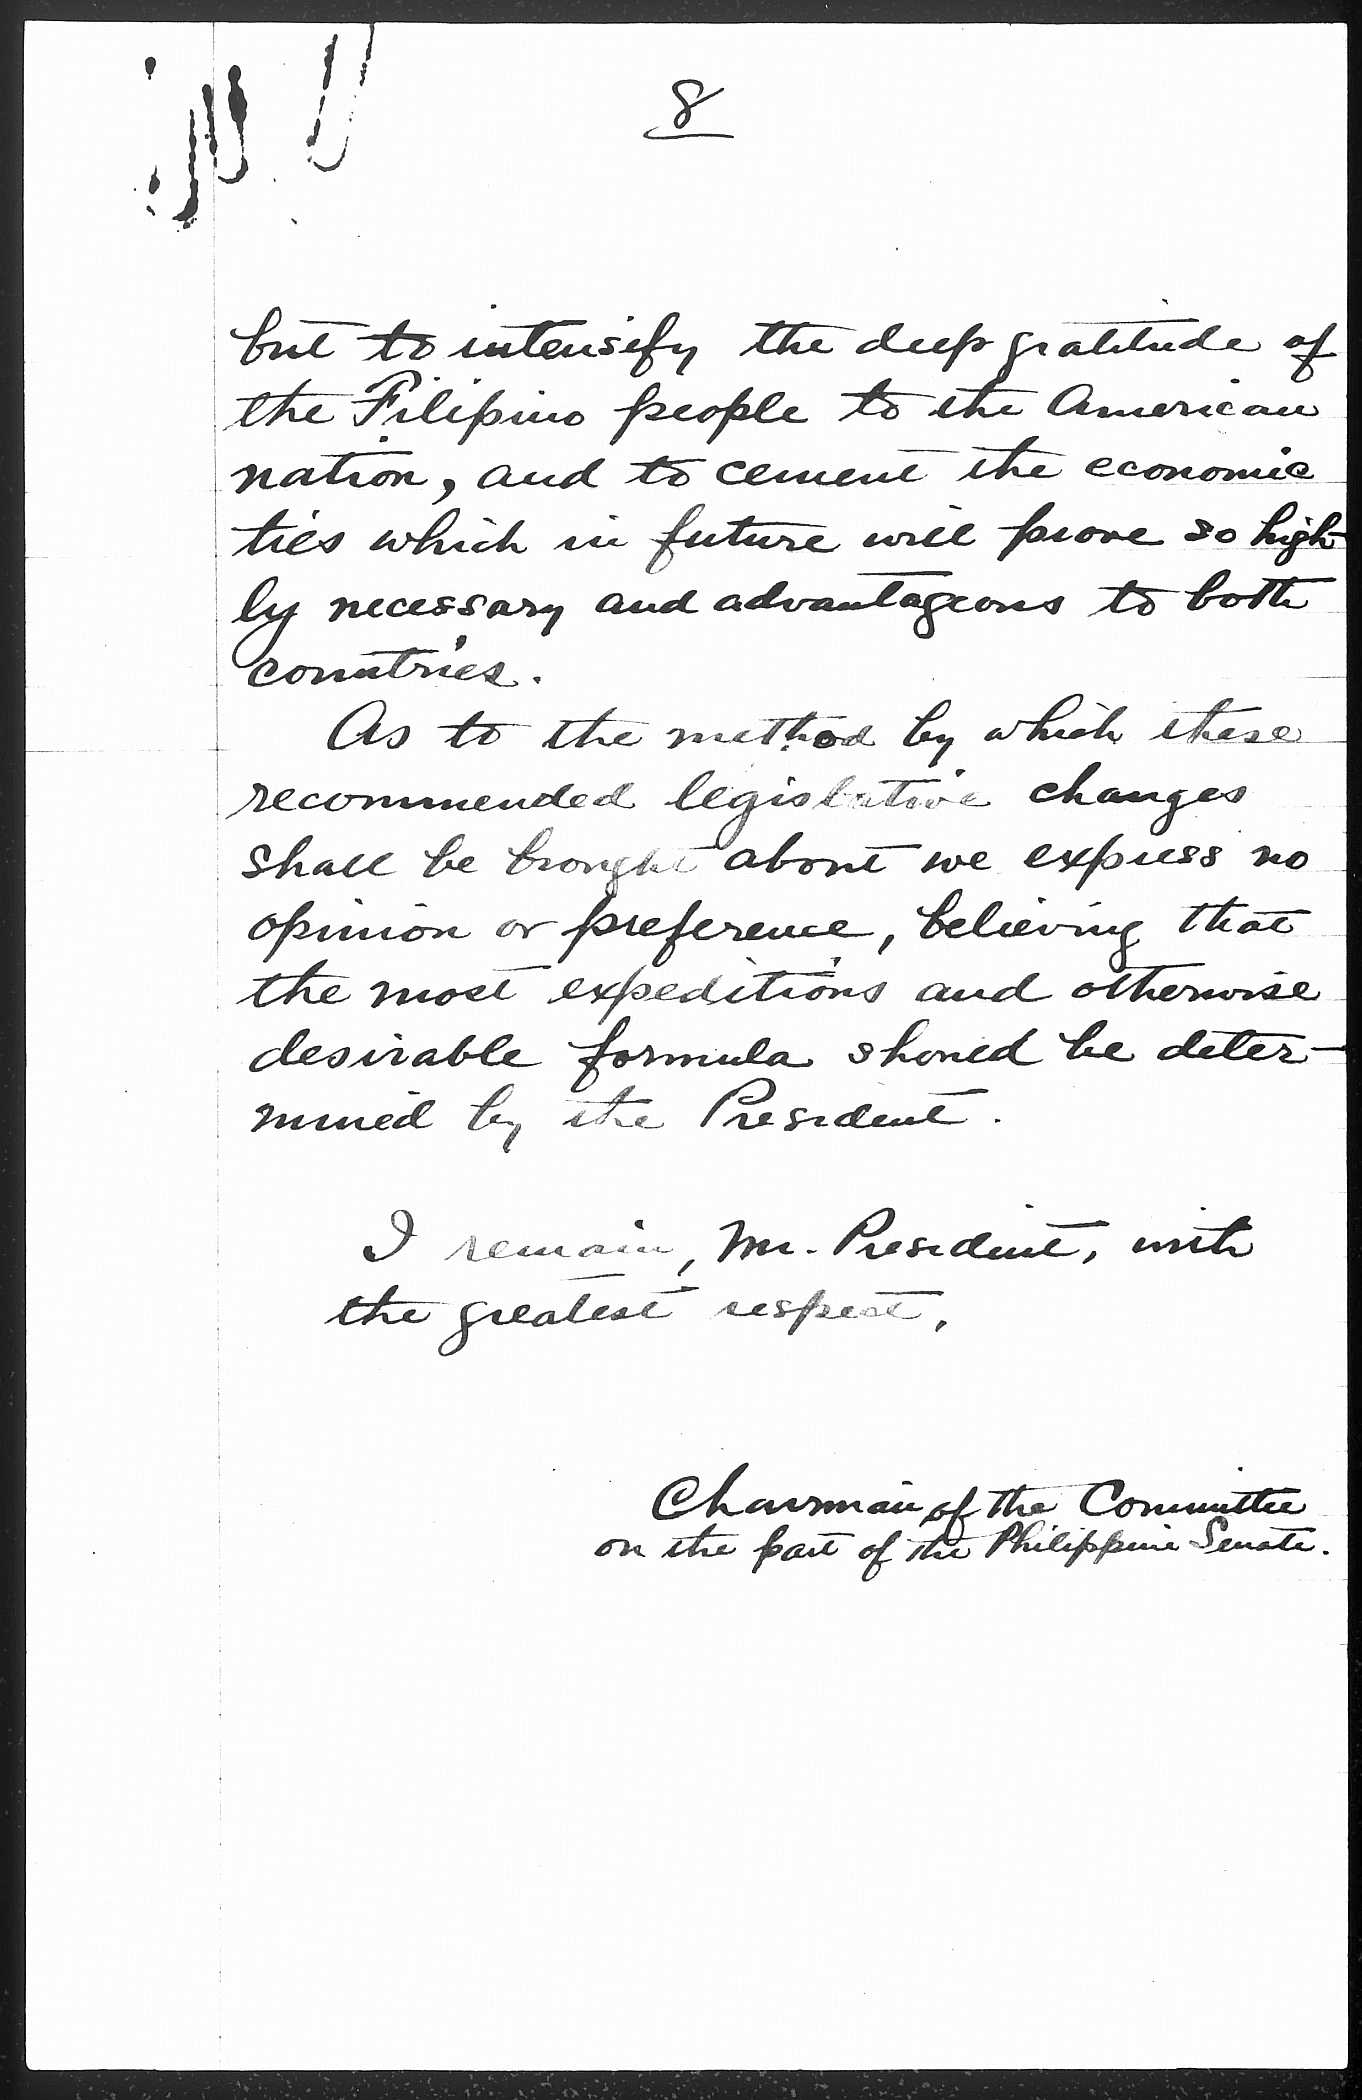 8
but to intensify the deep gratitude of
the Filipino people to the American
nation, and to cement the economic
ties which in future will prove so high-
ly necessary and advantageous to both
countries.
As to the method by which these
recommended legislative changes
shall be brought about we express no
opinion or preference, believing that
the most expeditious and otherwise
desirable formula should be deter-
mined by the President.
I remain, Mr. President, with
the greatest respect,
Chairman of the Committee
on the part of the Philippine Senate.